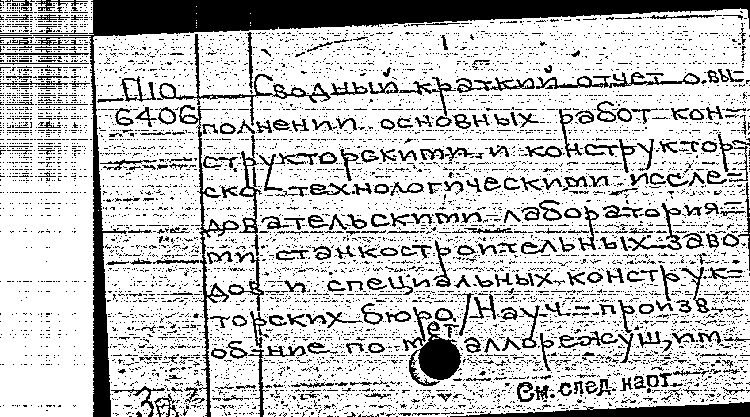 П10
6406
Сводный краткий отчет о вы-
полнении основных работ кон-
структорскими и конструктор-
ско-технологическими иссле-
довательскими лаборатория-
ми станкостроительных заво-
дов и специальных конструк-
торских бюро /Науч.-произв.
об-ние по металлорежущ.
См. след карт.